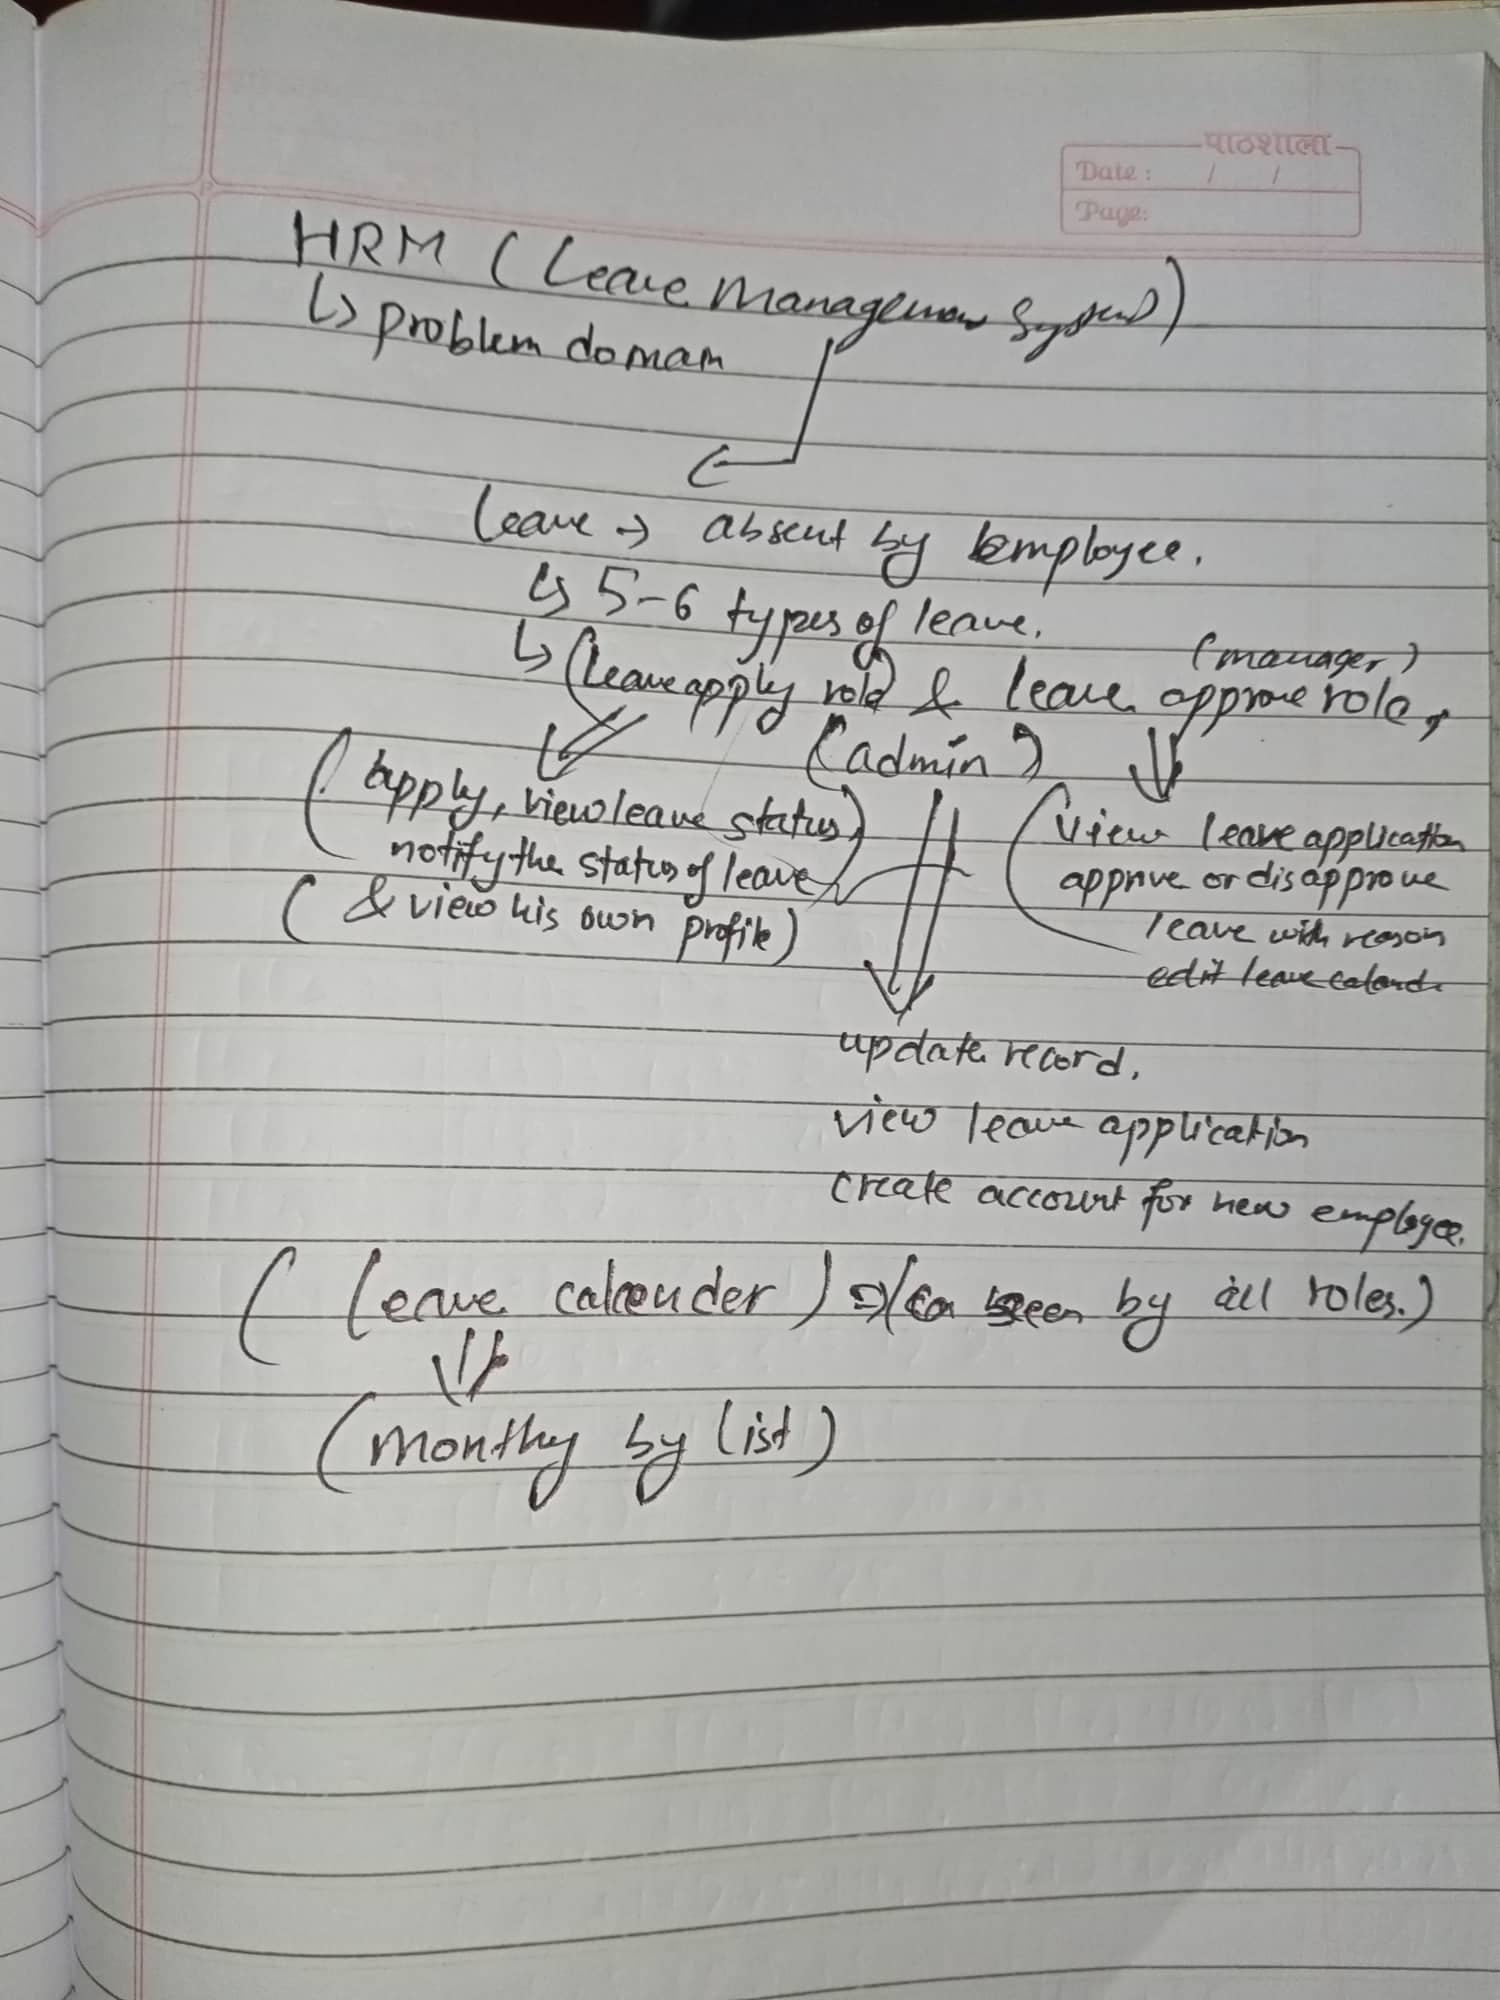 पाठशाला
Date : / /
Page:
HRM (Leave Management System)
↳ problem domain
leave → absent by employee.
↳ 5-6 types of leave.
(manager)
↳ (leave apply role) & leave approve role,
(admin)
(apply, view leave status,
notify the status of leave
(& view his own profile)
(view leave application
approve or disapprove
leave with reason
edit leave calend.
update record.
view leave application
create account for new employee.
(leave calender) => (can seen by all roles.)
(monthy by list)